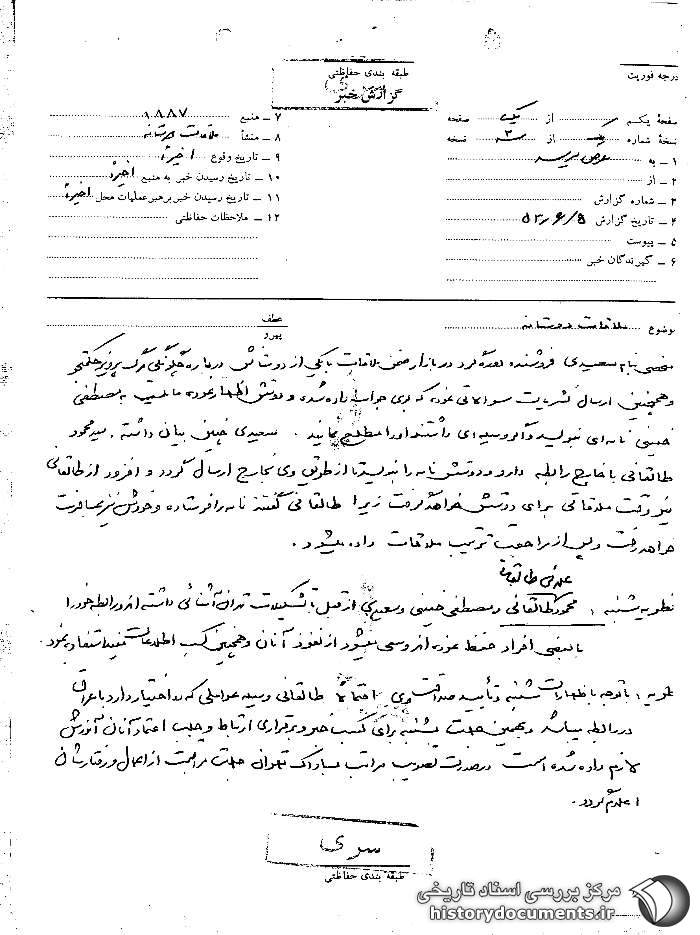 درجه فوریت
طبقه بندی حفاظتی
گزارش خبر
صفحهٔ یکم از یک صفحه
نسخهٔ شماره از ۳ نسخه
۱ – به عرض میرسد
۲ – از
۳ – شماره گزارش
۴ – تاریخ گزارش ۵۳/۶/۵
۵ – پیوست
۶ – گیرندگان خبر
۷ – منبع ۱۸۸۷
۸ – منشأ ملاقات دوستانه
۹ – تاریخ وقوع اخیراً
۱۰ – تاریخ رسیدن خبر به منبع اخیراً
۱۱ – تاریخ رسیدن خبر برهبر عملیات محل اخیراً
۱۲ – ملاحظات حفاظتی
موضوع ملاقات دوستانه
عطف
پیرو
شخصی بنام سعیدی فروشنده در بازار ضمن ملاقات با یکی از دوستانش درباره چگونگی مرگ پرویز حکمتجو
و همچنین ارسال نشریات سوالاتی نموده که برای جواب داده شده و دوستش اظهار نموده مایلست به مصطفی
خمینی نامه‌ای بنویسد و اگر وسیله‌ای داشتند او را مطلع نمایند . سعیدی چنین بیان داشته ، سید محمود
طالقانی با خارج رابطه دارد و دوستش نامه را بنویسد تا از طریق وی بخارج ارسال گردد و افزود از طالقانی
نیز وقت ملاقاتی برای دوستش خواهد گرفت زیرا طالقانی گفته نامه را فرستاده و خودش نیز بمسافرت
خواهد رفت و پس از مراجعت ترتیب ملاقات داده میشود .
علائی طالقانی
نظریه شنبه : محمود طالقانی و مصطفی خمینی و سعیدی از قبل با تشکیلات تهران آشنائی داشته اند و رابطه خود را
با بعضی افراد حفظ نموده اند و سعی میشود از نفوذ آنان و همچنین کسب اطلاعات مفید استفاده نمود .
نظریه : با توجه باظهارات شنبه و تأیید صداقت وی احتمالاً طالقانی وسیله عواملی که در اختیار دارد با عراق
در رابطه میباشد و بهمین جهت بشنبه برای کسب خبر و برقراری ارتباط و جلب اعتماد آنان آموزش
لازم داده شده است در صورت تصویب مراتب بساواک تهران جهت مراقبت از اعمال و رفتارشان
اعلام گردد .
سری
طبقه بندی حفاظتی
مرکز بررسی اسناد تاریخی
historydocuments.ir